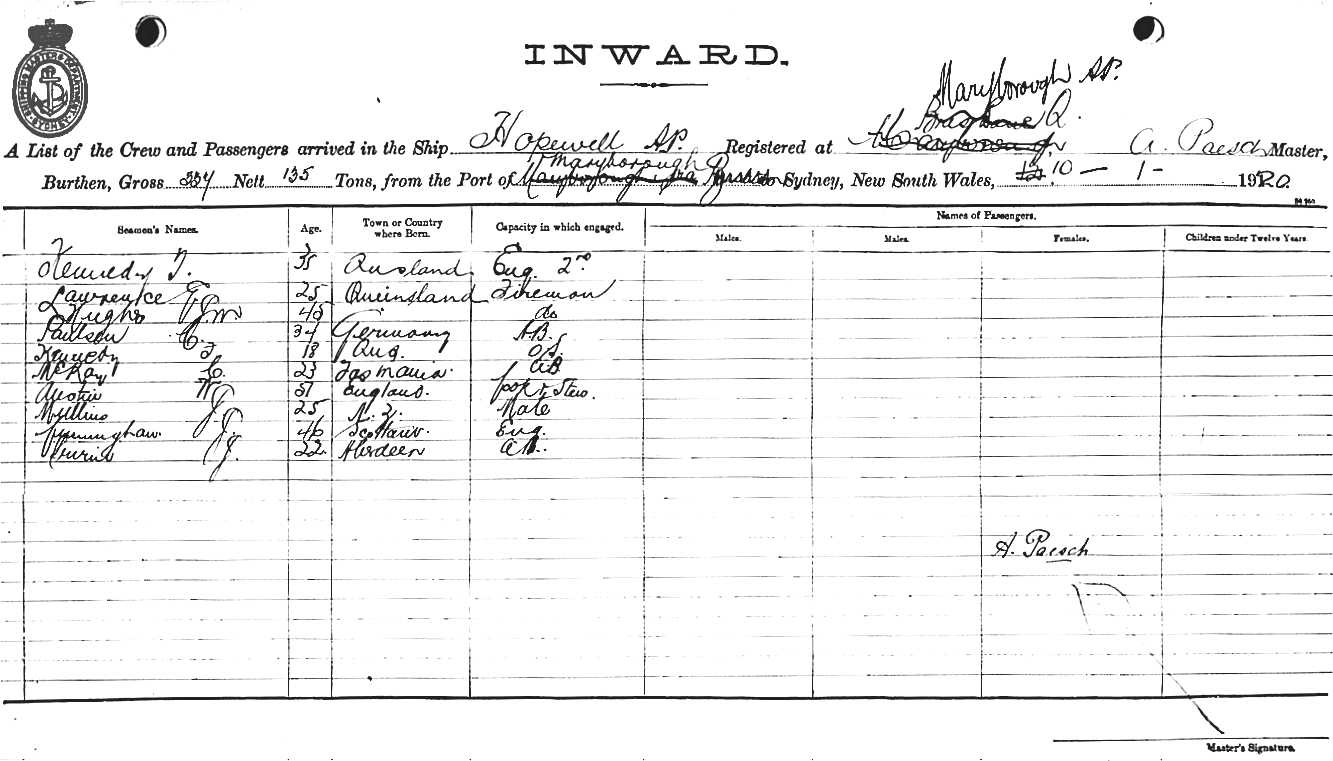 INWARD.
SHIPPING MASTER'S DEPARTMENT
SYDNEY
Maryborough
Brisbane Q.
A List of the Crew and Passengers arrived in the Ship Hopewell Registered at A. Paesch Master,
Maryborough
Burthen, Gross 334 Nett 135 Tons, from the Port of Sydney, New South Wales, 10 - 1 - 1920.
Names of Passengers.
Seamen's Names. Age. Town or Country where Born. Capacity in which engaged. Males. Males. Females. Children under Twelve Years.
Kennedy T. 35 Qusland Eng. 2nd
Lawrence 25 Queinsland Fireman
Hughs 48 do
Paulsen C. 34 Germany A.B.
Kennedy 18 O/S.
McKay 23 Tasmania AB
Austin W 51 England. Cook & Stew.
25 N. Z. Mate
J 46 Eng.
J. 22 Aberdeen A.B.
A. Paesch
Master's Signature.